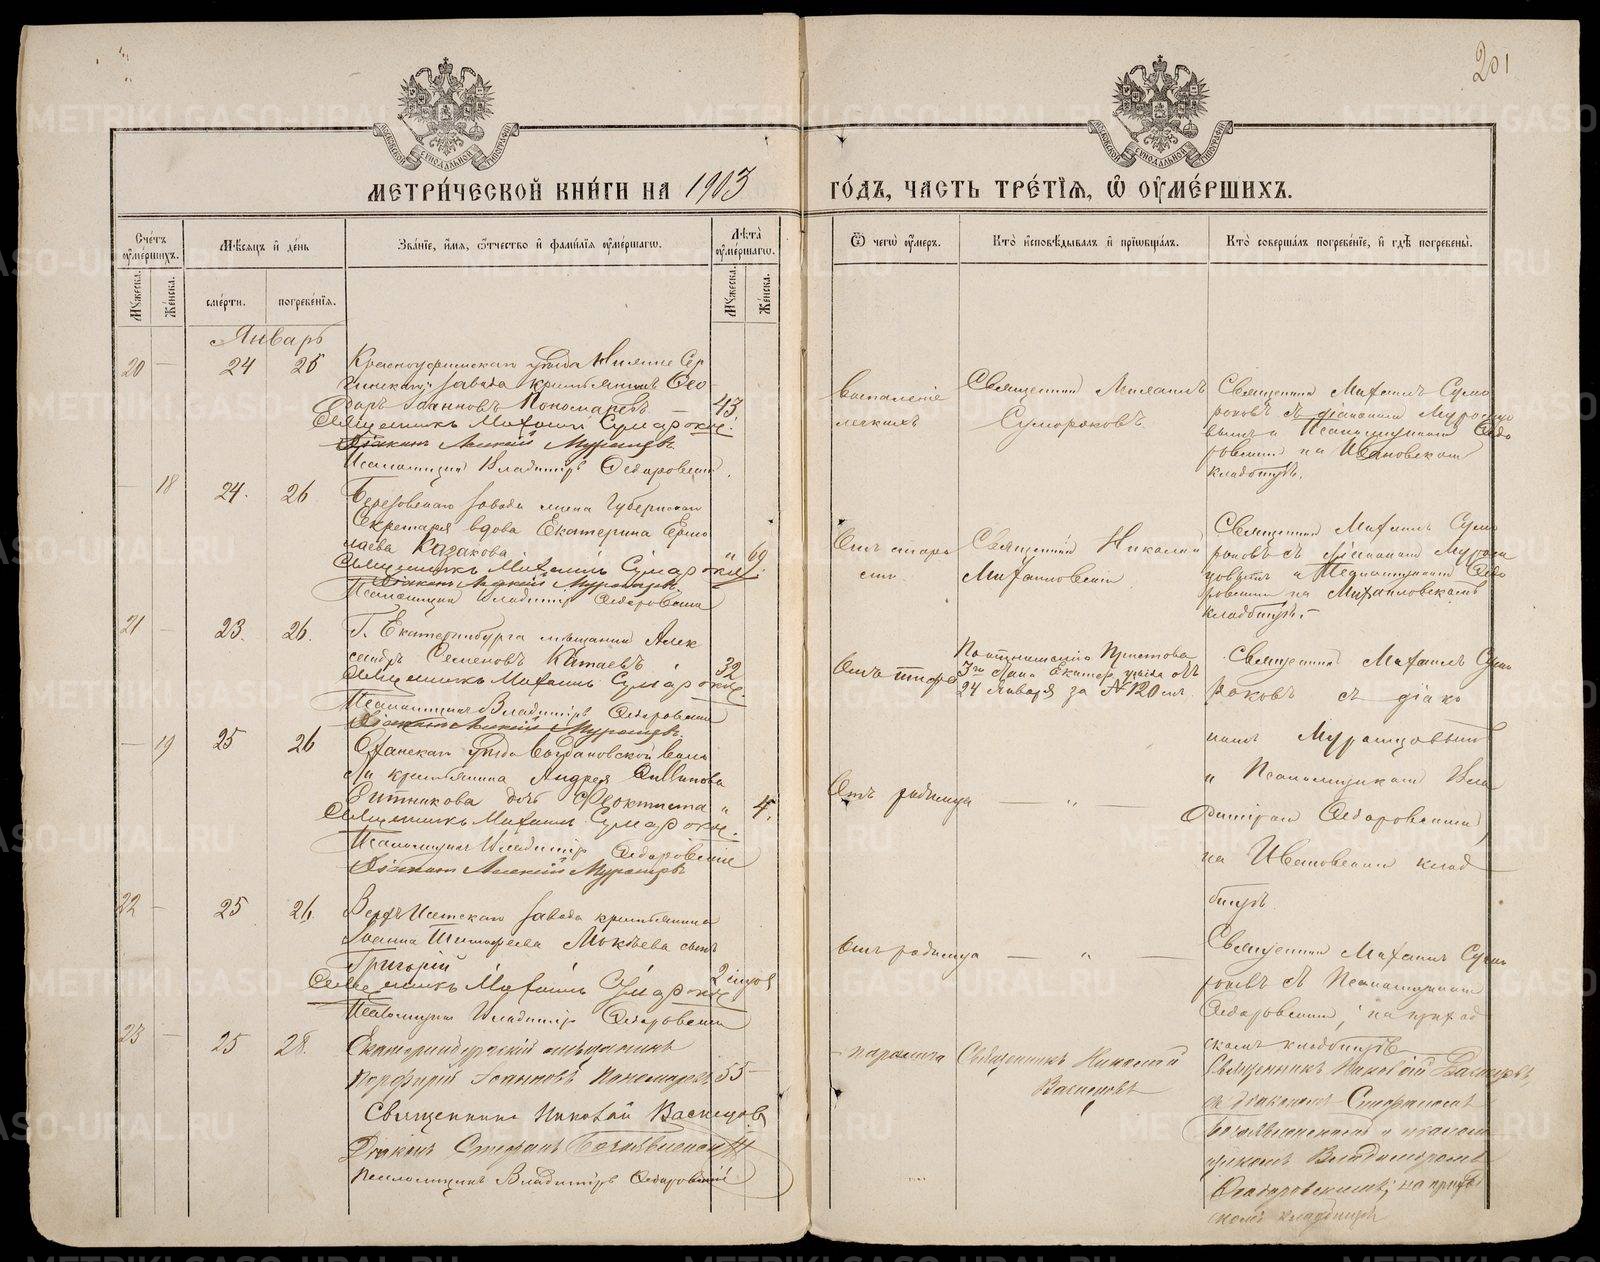 201
МЕТРИ́ЧЕСКОЙ КНИ́ГИ НА 1903 ГО́ДЪ, ЧАСТЬ ТРЕ́ТІѦ, Ѡ ОУМЕ́РШИХЪ.
Счетъ оумершихъ.
Мѣсяцъ и день
Званіе, имя, отчество и фамилія оумершагѡ.
Лѣта оумершагѡ.
Ѿ чегѡ оумеръ.
Кто исповѣдывалъ и пріобщалъ.
Кто совершалъ погребеніе, и гдѣ погребены.
Мужеска.
Женска.
смерти.
погребенія.
Мужеска.
Женска.
Январь
20 — 24 26 Красноуфимскаго уѣзда Нижне Сер
гинскаго завода крестьянинъ Ѳео
доръ Іоанновъ Пономаревъ — 43.
Священникъ Михаилъ Сумароковъ.
Діаконъ Алексій Мурашевъ
Псаломщикъ Владиміръ Ѳедоровскій
Воспаленіе
легкихъ
Священникъ Михаилъ
Сумароковъ.
Священникъ Михаилъ Сума
роковъ съ діакономъ
и Псаломщикомъ Ѳедо
ровскимъ на Ивановскомъ
кладбищѣ.
— 18 24. 26 Березовскаго завода жена Губернскаго
Секретаря вдова Екатерина Ермо
лаева Казакова " 69.
Священникъ Михаилъ Сумароковъ
Псаломщикъ Владиміръ Ѳедоровскій
Отъ старо
сти.
Священникъ Николай
Михайловскій
Священникъ Михаилъ Сума
роковъ съ Діакономъ
и Псаломщикомъ Ѳедо
ровскимъ на Михайловскомъ
кладбищѣ.
21 — 23. 26. Г. Екатеринбурга мѣщанинъ Алек
сандръ Семеновъ Катаевъ 32
Священникъ Михаилъ Сумароковъ.
Псаломщикъ Владиміръ Ѳедоровскій
По отношенію Пристава
3го Стана Екатер. уѣзда отъ
24 Января за № 120
Священникъ Михаилъ Сума
роковъ съ діако
номъ
и Псаломщикомъ Вла
диміромъ Ѳедоровскимъ,
на Ивановскомъ клад
бищѣ.
— 19 25 26 Оханскаго уѣзда Богдановской воло
сти крестьянина Андрея
Ситникова дочь Ѳеоктиста " 4.
Священникъ Михаилъ Сумароковъ.
Псаломщикъ Владиміръ Ѳедоровскій
Отъ родимца — " —
22 — 25 26. Верхъ Исетскаго завода крестьянина
Іоанна Тимофеева Мокѣева сынъ
Григорій
Священникъ Михаилъ Сумароковъ
Псаломщикъ Владиміръ Ѳедоровскій
Отъ родимца — " —
Священникъ Михаилъ Сума
роковъ съ Псаломщикомъ
Ѳедоровскимъ, на приход
скомъ кладбищѣ
23 — 25 28. Екатеринбургскій мѣщанинъ
Порфирій Іоанновъ Пономаревъ 55 —
Священникъ Николай Васнецовъ
Діаконъ Стефанъ Богоявленскій
Псаломщикъ Владиміръ Ѳедоровскій
паралича
Священникъ Николай
Васнецовъ
Священникъ Николай Васнецовъ,
съ діакономъ Стефаномъ
Богоявленскимъ и псалом
щикомъ Владиміромъ
Ѳедоровскимъ; на приход
скомъ кладбищѣ
METRIKI.GASO-URAL.RU